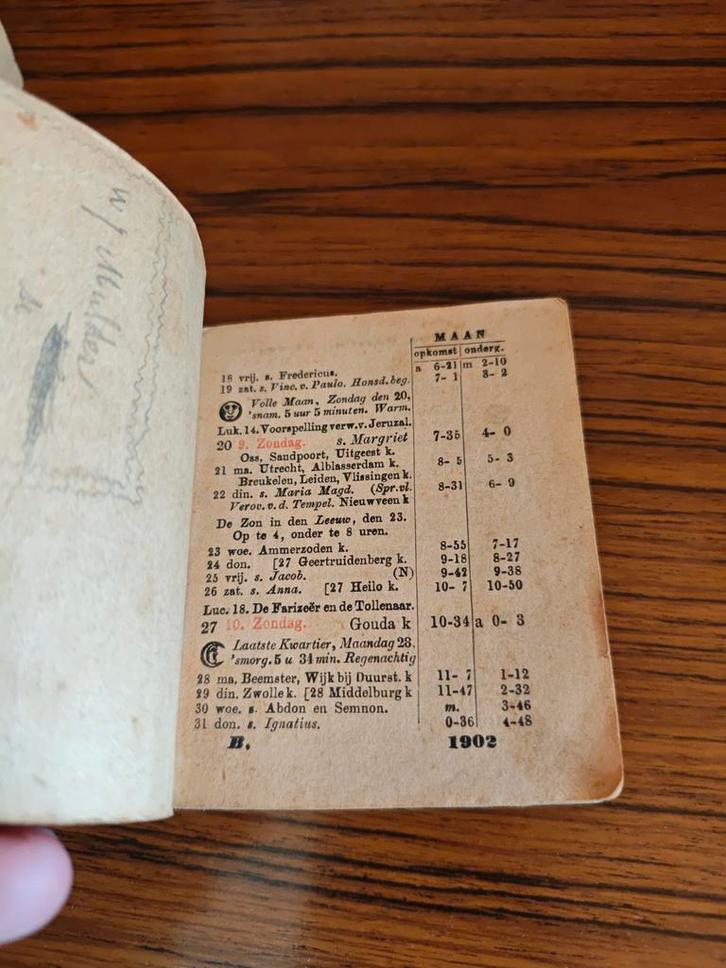 W J Mulder
MAAN
opkomst onderg.
18 vrij. s. Fredericus. a 6-21 m 2-10
19 zat. s. Vinc. v. Paulo. Honsd. beg. 7- 1 3- 2
Volle Maan, Zondag den 20,
'snam. 5 uur 5 minuten. Warm.
Luk. 14. Voorspelling verw. v. Jeruzal.
20 9. Zondag. s. Margriet 7-35 4- 0
Oss, Sandpoort, Uitgeest k.
21 ma. Utrecht, Alblasserdam k. 8- 5 5- 3
Breukelen, Leiden, Vlissingen k.
22 din. s. Maria Magd. (Spr. vl. 8-31 6- 9
Verov. v. d. Tempel. Nieuwveen k
De Zon in den Leeuw, den 23.
Op te 4, onder te 8 uren.
23 woe. Ammerzoden k. 8-55 7-17
24 don. [27 Geertruidenberg k. 9-18 8-27
25 vrij. s. Jacob. (N) 9-42 9-38
26 zat. s. Anna. [27 Heilo k. 10- 7 10-50
Luc. 18. De Farizeër en de Tollenaar.
27 10. Zondag. Gouda k 10-34 a 0- 3
Laatste Kwartier, Maandag 28,
'smorg. 5 u 34 min. Regenachtig
28 ma. Beemster, Wijk bij Duurst. k 11- 7 1-12
29 din. Zwolle k. [28 Middelburg k 11-47 2-32
30 woe. s. Abdon en Semnon. m. 3-46
31 don. s. Ignatius. 0-36 4-48
B. 1902